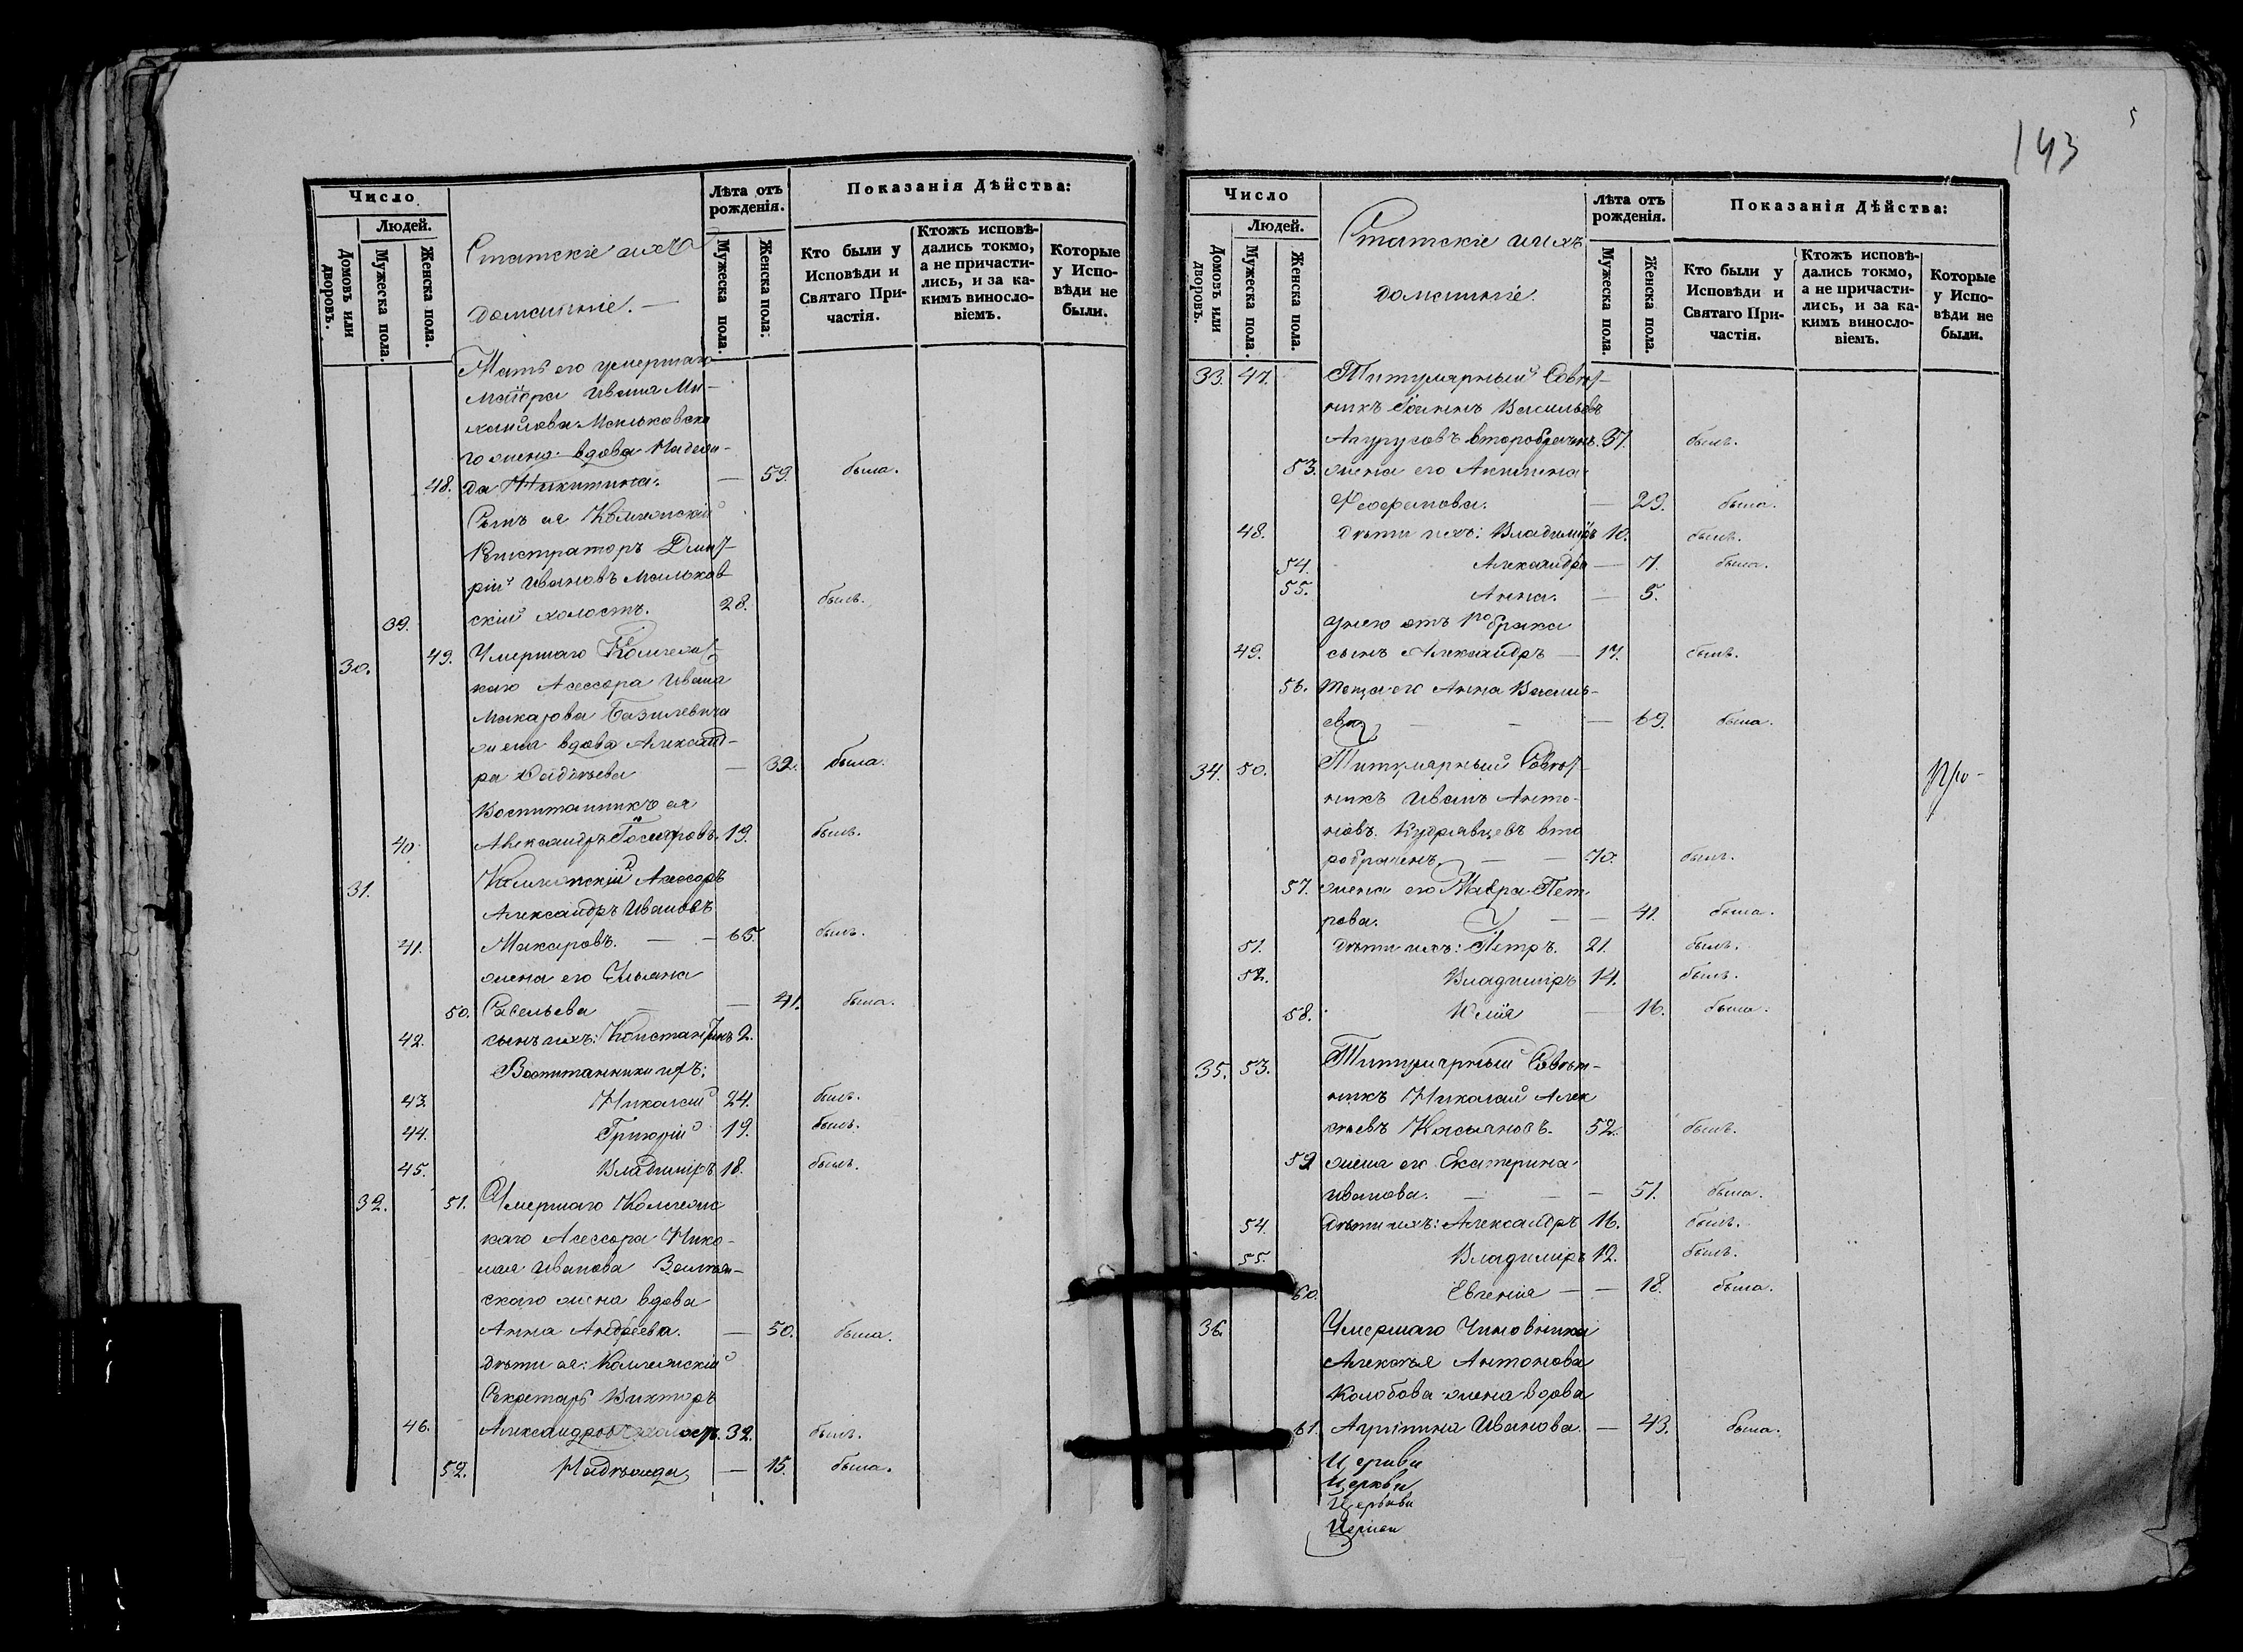 143
5
Число
Людей.
Домовъ или дворовъ.
Мужеска пола.
Женска пола.
Статскіе и ихъ
домашніе. —
Лѣта отъ рожденія.
Мужеска пола.
Женска пола.
Показанія Дѣйства:
Кто были у Исповѣди и Святаго Причастія.
Ктожъ исповѣдались токмо, а не причастились, и за какимъ винословіемъ.
Которые у Исповѣди не были.
Мать его умершаго
Маіора Ивана Ми-
хайлова Мальковска
го жена вдова Надеж-
48. да Никитина. — 59. была.
Сынъ ея Коллежскій
Регистраторъ Дмит-
рій Ивановъ Мальков
39. скій холостъ. 28. былъ.
30. 49. Умершаго Коллежс-
каго Асессора Ивана
Макарова Базилевича
жена вдова Александ-
ра Фадѣева — 32. была.
Воспитанникъ ея
40. Александръ 19. былъ.
31. Коллежскій Асессоръ
Александръ Ивановъ
41. Макаровъ. — — 65. былъ.
жена его Ульяна
50. Савельева — 41. была.
42. сынъ ихъ: Константинъ 2.
Воспитанники ихъ:
43. Николай 24. былъ.
44. Григорій 19. былъ.
45. Владиміръ 18. былъ.
32. 51. Умершаго Коллежс
каго Асессора Нико-
лая Иванова
скаго жена вдова
Анна Андреева. — 50. была.
Дѣти ея: Коллежскій
Секретарь Викторъ
46. Александровъ холостъ. 32. былъ.
52. Надѣжда — 15. была.
Число
Людей.
Домовъ или дворовъ.
Мужеска пола.
Женска пола.
Статскіе и ихъ
домашніе.
Лѣта отъ рожденія.
Мужеска пола.
Женска пола.
Показанія Дѣйства:
Кто были у Исповѣди и Святаго Причастія.
Ктожъ исповѣдались токмо, а не причастились, и за какимъ винословіемъ.
Которые у Исповѣди не были.
33. 47. Титулярный Совѣт-
никъ Іоаннъ Васильевъ
второбраченъ. 37. былъ.
53. жена его Акилина
Феофанова. — 29. была.
48. Дѣти ихъ: Владиміръ 10. былъ.
54. Александра — 7. была.
55. Анна. — 5.
У него отъ 1го брака
49. сынъ Александръ — 17. былъ.
56. Теща его Анна Василь-
ева — — — 69. была.
34. 50. Титулярный Совѣт-
никъ Иванъ Анто-
новъ Кудрявцевъ вто
робраченъ — — 70. былъ.
57. жена его Мавра Пет
рова. — — 41. была.
51. Дѣти ихъ: Петръ. 21. былъ.
52. Владиміръ 14. былъ.
58. Юлія — 16. была.
35. 53. Титулярный Совѣт-
никъ Николай Алек
сѣевъ Касьяновъ. 52. былъ.
59 жена его Екатерина
Иванова. — — — 51. была.
54. Дѣти ихъ: Александръ 16. былъ.
55. Владиміръ 12. былъ.
60. Евгенія — — 18. была.
36. Умершаго Чиновника
Алексѣя Антонова
Колобова жена вдова
61. Агрипина Иванова. — 43. была.
Церкви
Церкви
Церкви